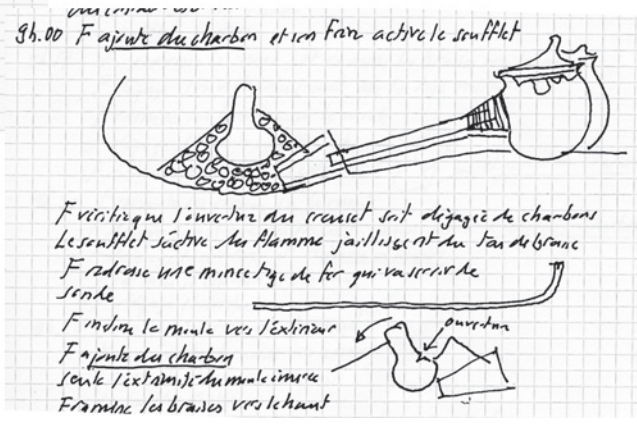 9h.00 F ajoute du charbon et son frère active le soufflet
F vérifie que l'ouverture du creuset soit dégagée de charbons
Le soufflet s'active des flammes jaillissent du tas de braise
F redresse une mince tige de fer qui va servir de
sonde
F incline le moule vers l'extérieur
ouverture
F ajoute du charbon
seule l'extrémité du moule émerge
F ramène les braises vers le haut